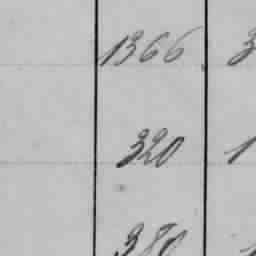 1366 3
320 1
380